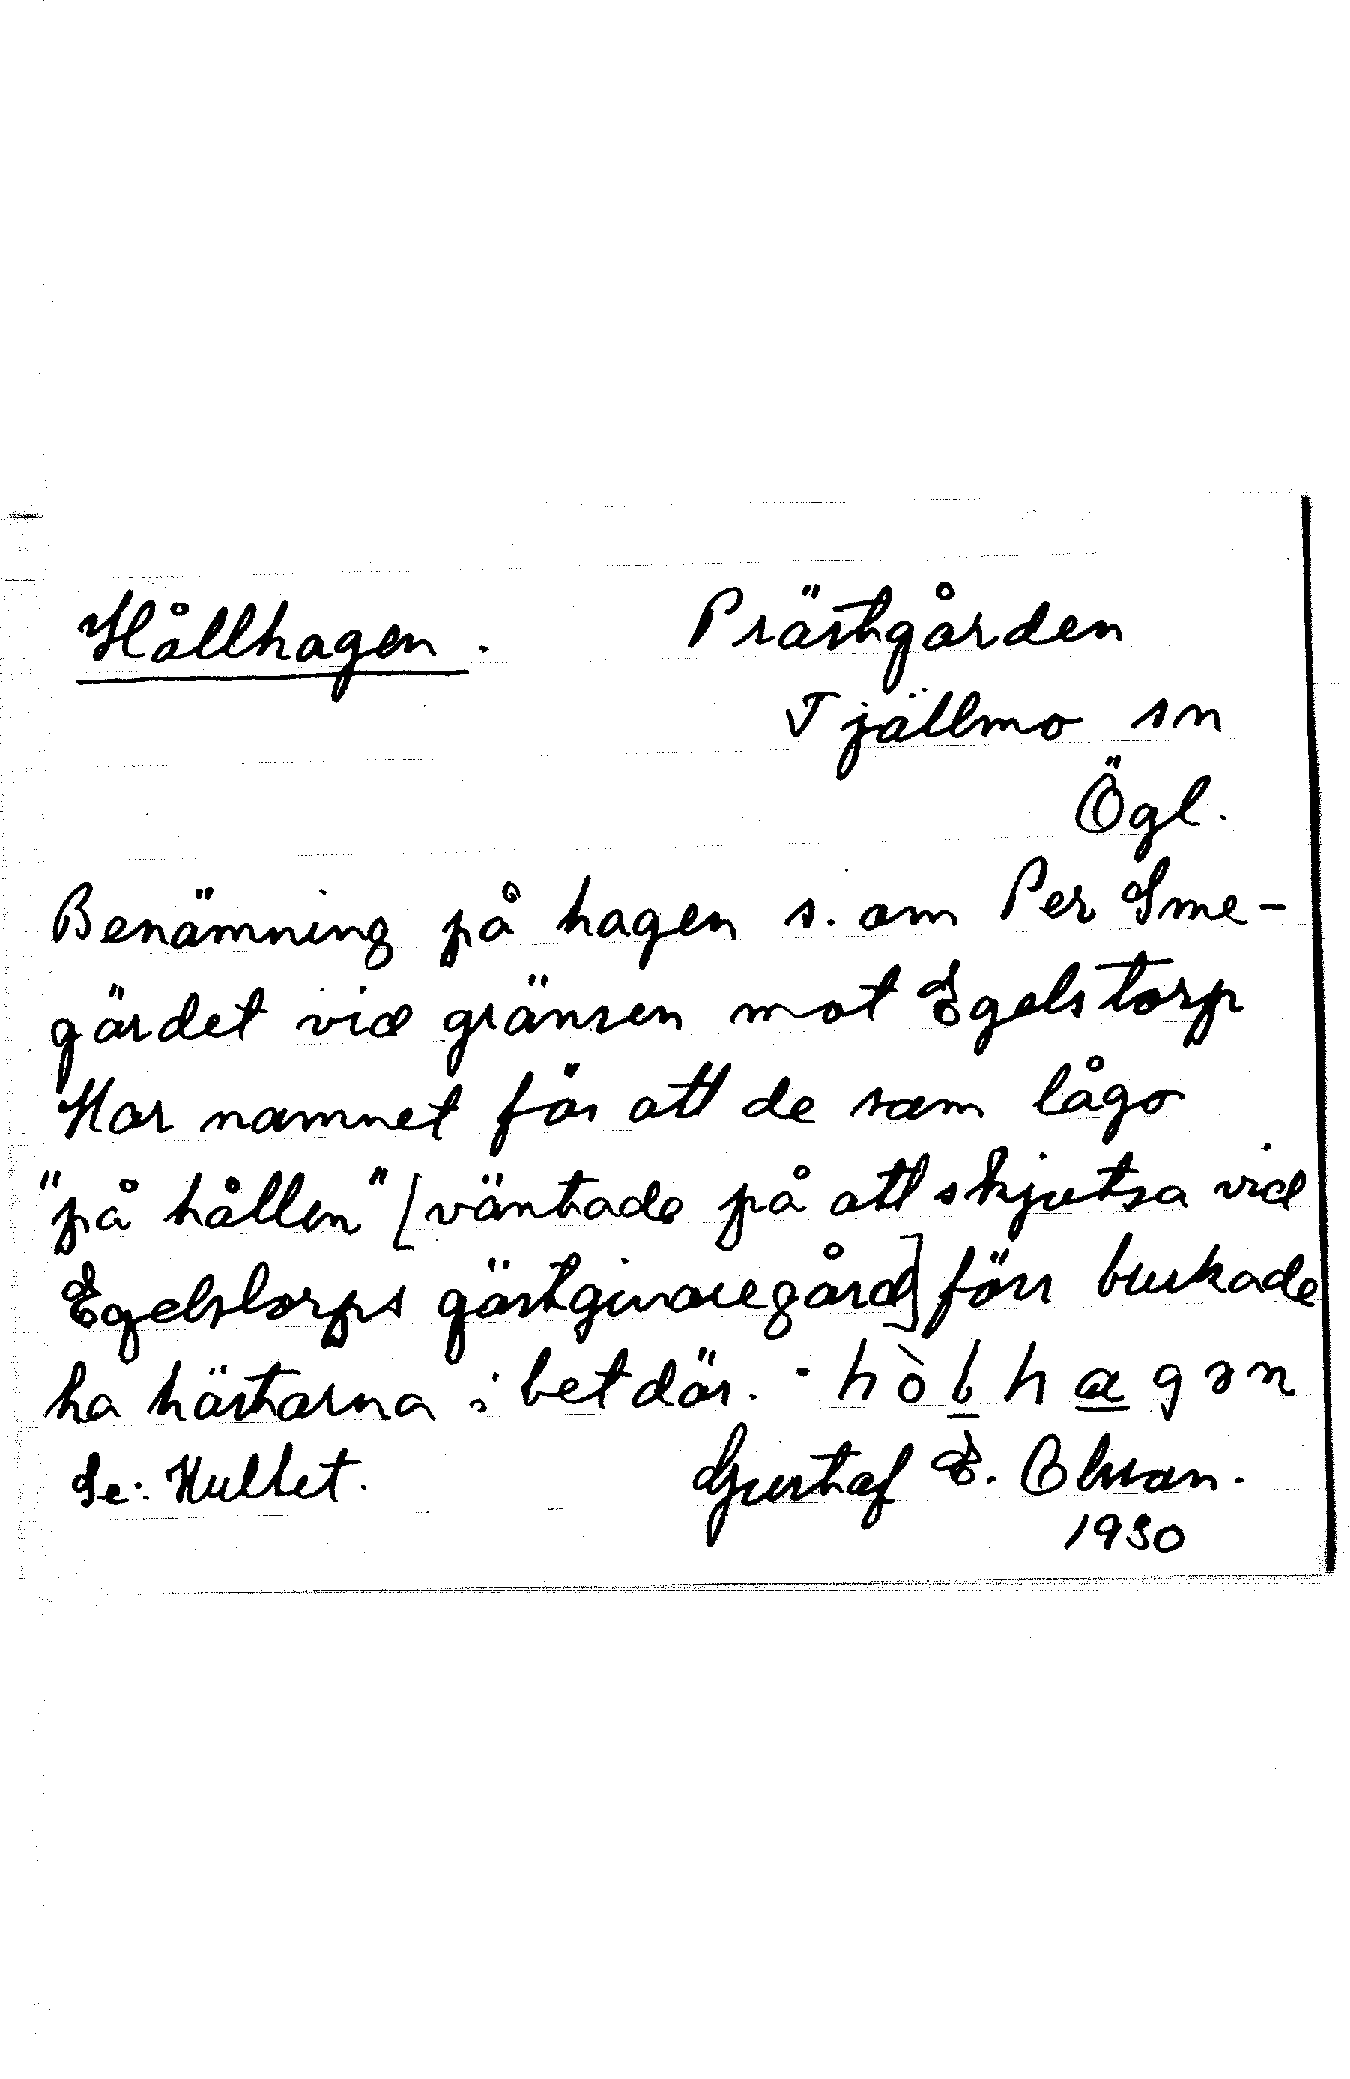 Hållhagen. Prästgården
Tjällmo sn
Ögl.
Benämning på hagen s. om Per Sme-
gärdet vid gränsen mot Egelstorp
Har namnet för att de som lågo
"på hållen" [väntade på att skjutsa vid
Egelstorps gästgivaregård] förr brukade
ha hästarna i bet där. - hòlhagən
Se: Hultet. Gustaf E. Olsson.
1930